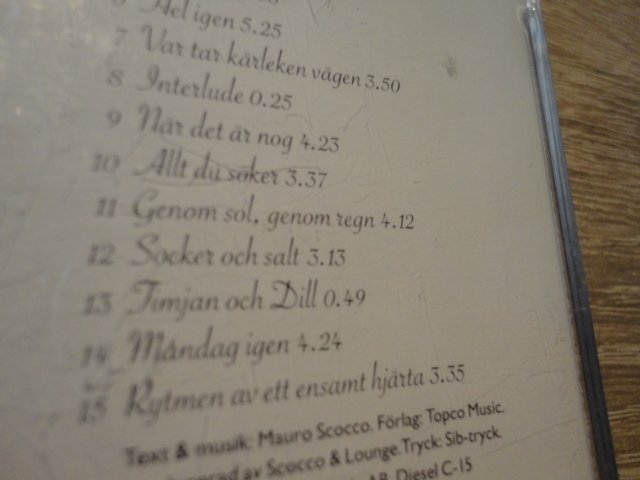 Hel igen 5.25
7 Var tar kärleken vägen 3.50
8 Interlude 0.25
9 När det är nog 4.23
10 Allt du söker 3.37
11 Genom sol, genom regn 4.12
12 Socker och salt 3.13
13 Timjan och Dill 0.49
14 Måndag igen 4.24
15 Rytmen av ett ensamt hjärta 3.35
Text & musik: Mauro Scocco. Förlag: Topco Music.
av Scocco & Lounge. Tryck: Sib-tryck.
Diesel C-15